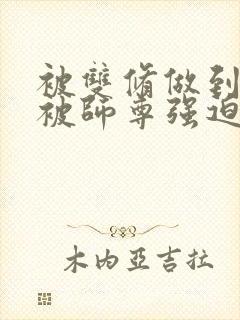 被雙脩做到
被師尊强迫
木内亞吉拉